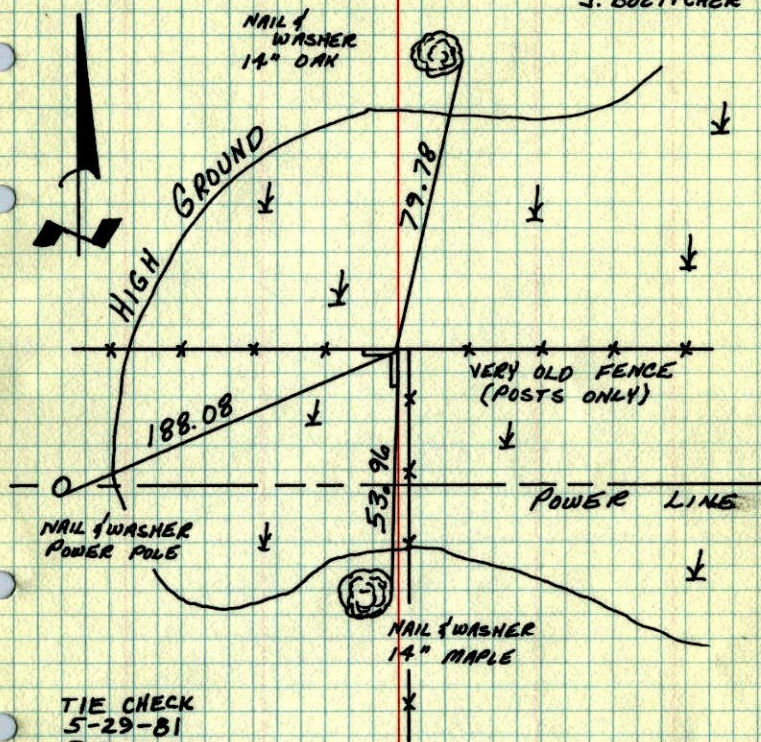 J. BOETTCHER
NAIL &
WASHER
14" OAK
HIGH GROUND
79.78
VERY OLD FENCE
(POSTS ONLY)
188.08
53.96
POWER LINE
NAIL & WASHER
POWER POLE
NAIL & WASHER
14" MAPLE
TIE CHECK
5-29-81